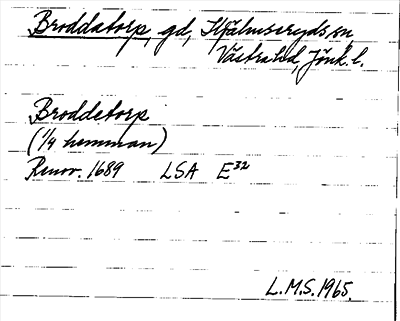 Broddatorp, gd, Hjälmseryds sn,
Västra hd, Jönk. l.
Broddetorp
(1/4 hemman)
Renov. 1689 LSA E32
L.M.S. 1965.